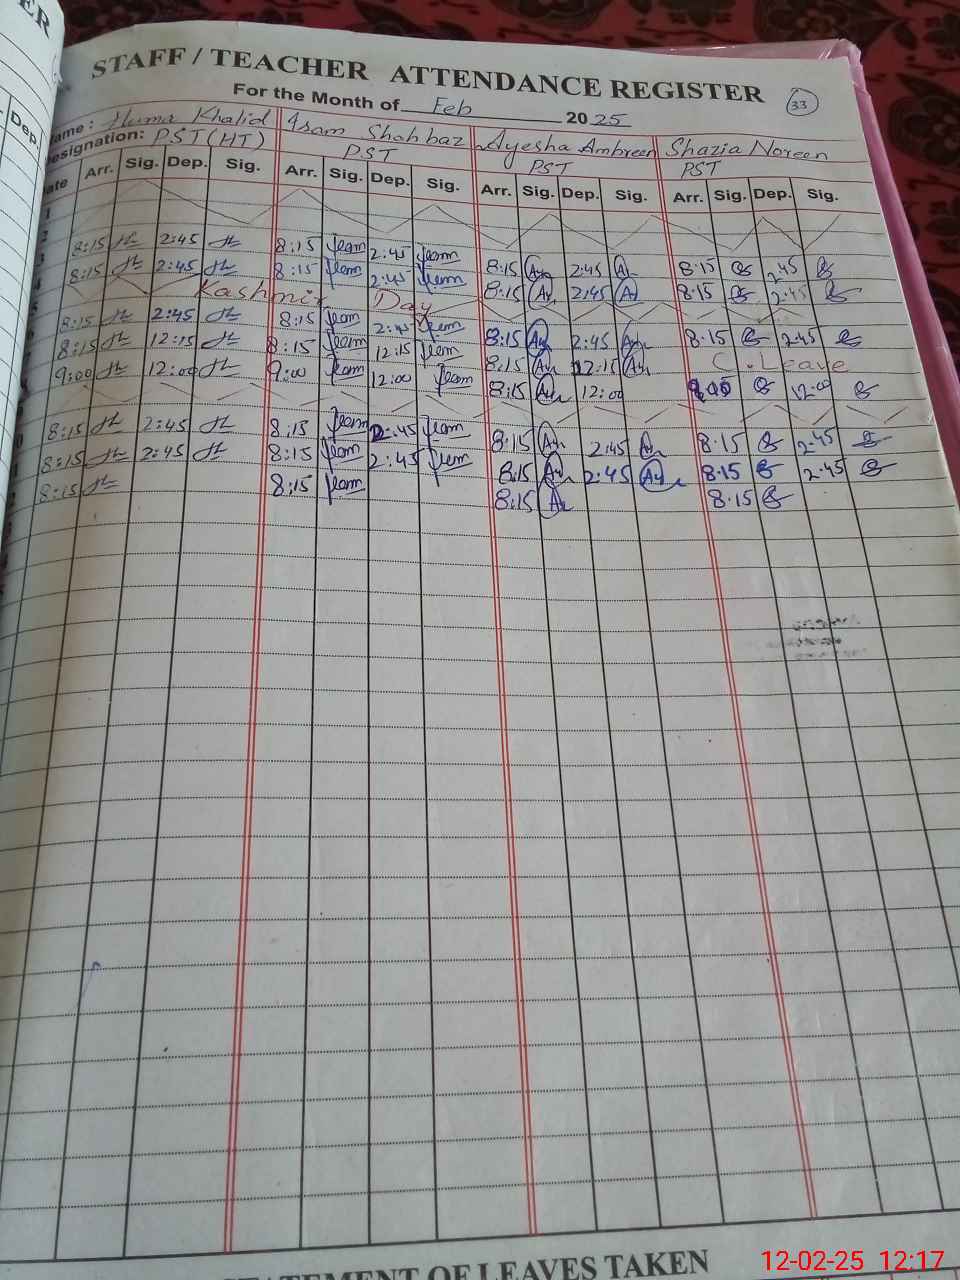 ER
Dep.
STAFF / TEACHER ATTENDANCE REGISTER
For the Month of Feb 2025
33
ame: Huma Khalid Iram Shahbaz Ayesha Ambreen Shazia Noreen
esignation: PST(HT) PST PST PST
ate Arr. Sig. Dep. Sig. Arr. Sig. Dep. Sig. Arr. Sig. Dep. Sig. Arr. Sig. Dep. Sig.
1
2
3 8:15 2:45 8:15 2:45 8:15 2:45 8:15 2:45
4 8:15 2:45 8:15 2:45 8:15 2:45 8:15 2:45
5 Kashmir Day
6 8:15 2:45 8:15 2:45 8:15 2:45 8:15 2:45
7 8:15 12:15 8:15 12:15 8:15 12:15 C. Leave
9:00 12:00 9:00 12:00 8:15 12:00 9:00 12:00
8:15 2:45 8:15 2:45 8:15 2:45 8:15 2:45
8:15 2:45 8:15 2:45 8:15 2:45 8:15 2:45
8:15 8:15 8:15 8:15
STATEMENT OF LEAVES TAKEN
12-02-25 12:17